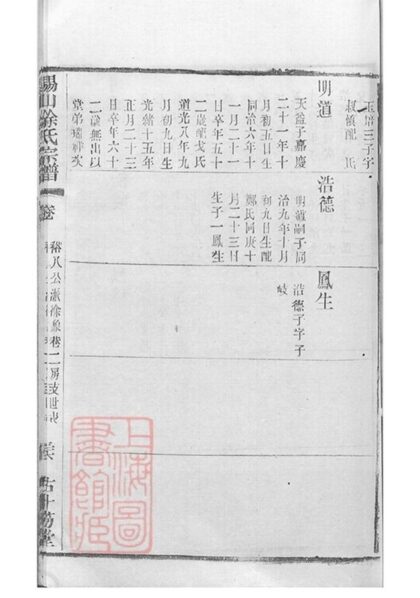 三子字
叔慎配 氏
明道
天益子嘉慶
二十一年十
月初五日生
同治六年十
一月二十一
日卒年五十
二歲配戈氏
道光八年九
月初九日生
光緒十五年
正月二十三
日卒年六十
二歲無出以
堂弟瑞祥次
浩德
明道嗣子同
治九年十月
初九日生配
鄭氏同庚十
月二十三日
生子一鳳生
鳳生
浩德子字子
岐
錫山徐氏宗譜
卷
裕八公派徐巷二房支世表
上海圖
書館藏